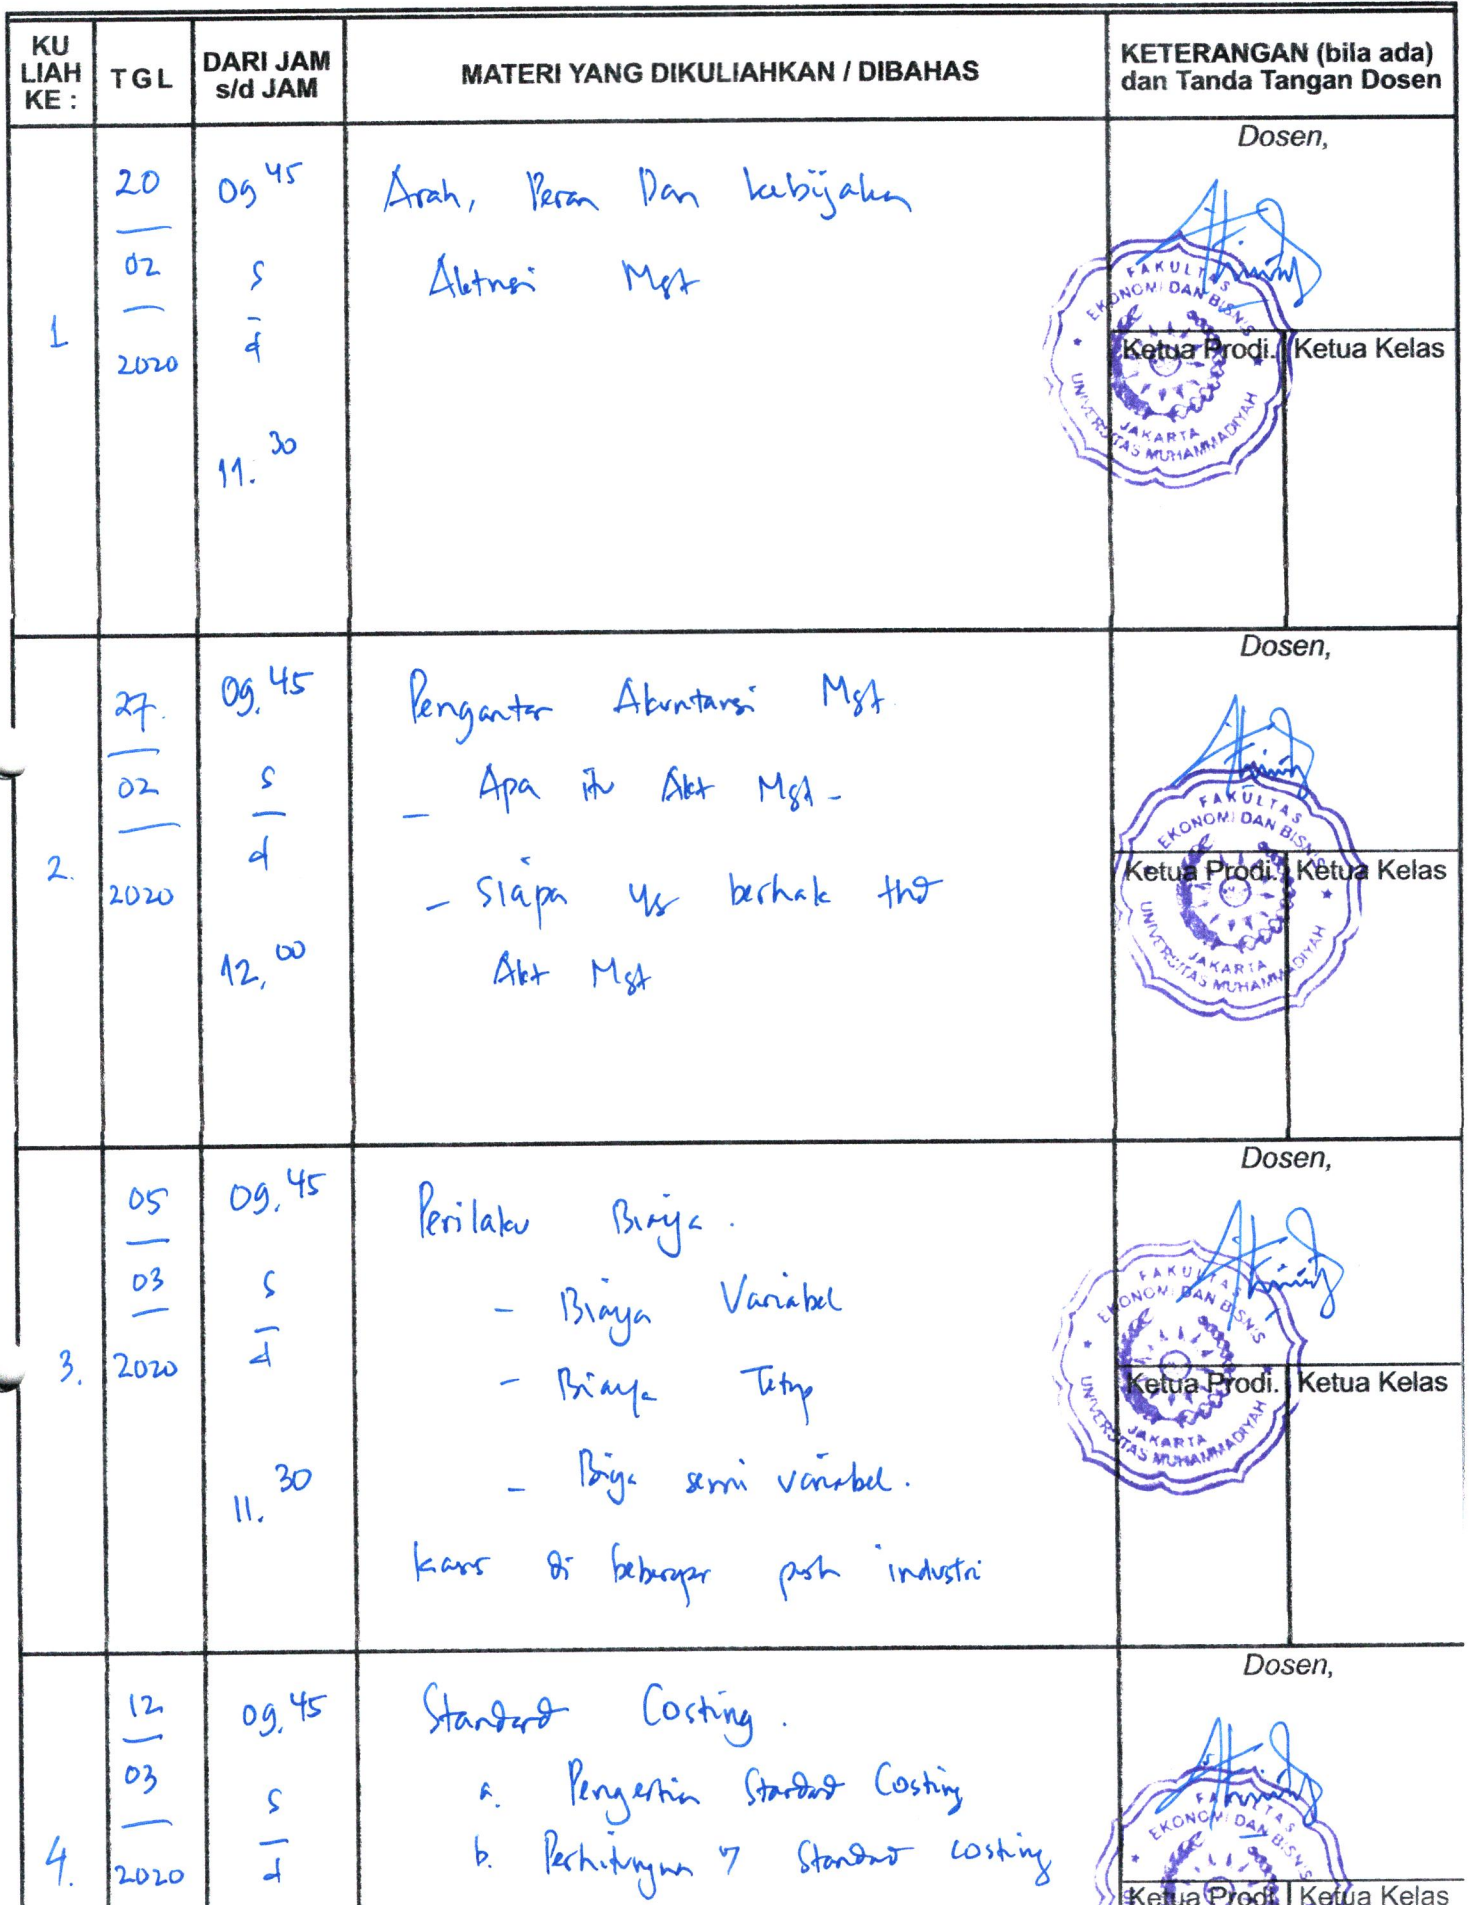 KU LIAH KE :
TGL
DARI JAM s/d JAM
MATERI YANG DIKULIAHKAN / DIBAHAS
KETERANGAN (bila ada) dan Tanda Tangan Dosen
1
20
02
2020
09 45
s
d
11. 30
Arah, Peran Dan kebijakan
Aktnsi Mgt
Dosen,
FAKULTAS
EKONOMI DAN BISNIS
UNIVERSITAS MUHAMMADIYAH
JAKARTA
Ketua Prodi. Ketua Kelas
2.
27.
02
2020
09. 45
s
d
12. 00
Pengantar Akuntansi Mgt
- Apa itu Akt Mgt -
- Siapa yg berhak thd
Akt Mgt
Dosen,
FAKULTAS
EKONOMI DAN BISNIS
UNIVERSITAS MUHAMMADIYAH
JAKARTA
Ketua Prodi. Ketua Kelas
3.
05
03
2020
09. 45
s
d
11. 30
Perilaku Biaya .
- Biaya Variabel
- Biaya Tetap
- Biaya semi variabel .
kasus di beberapa industri
Dosen,
FAKULTAS
EKONOMI DAN BISNIS
UNIVERSITAS MUHAMMADIYAH
JAKARTA
Ketua Prodi. Ketua Kelas
4.
12
03
2020
09. 45
s
d
Standard Costing .
a. Pengertian Standard Costing
b. Perhitungan Standard costing
Dosen,
FAKULTAS
EKONOMI DAN BISNIS
Ketua Prodi. Ketua Kelas